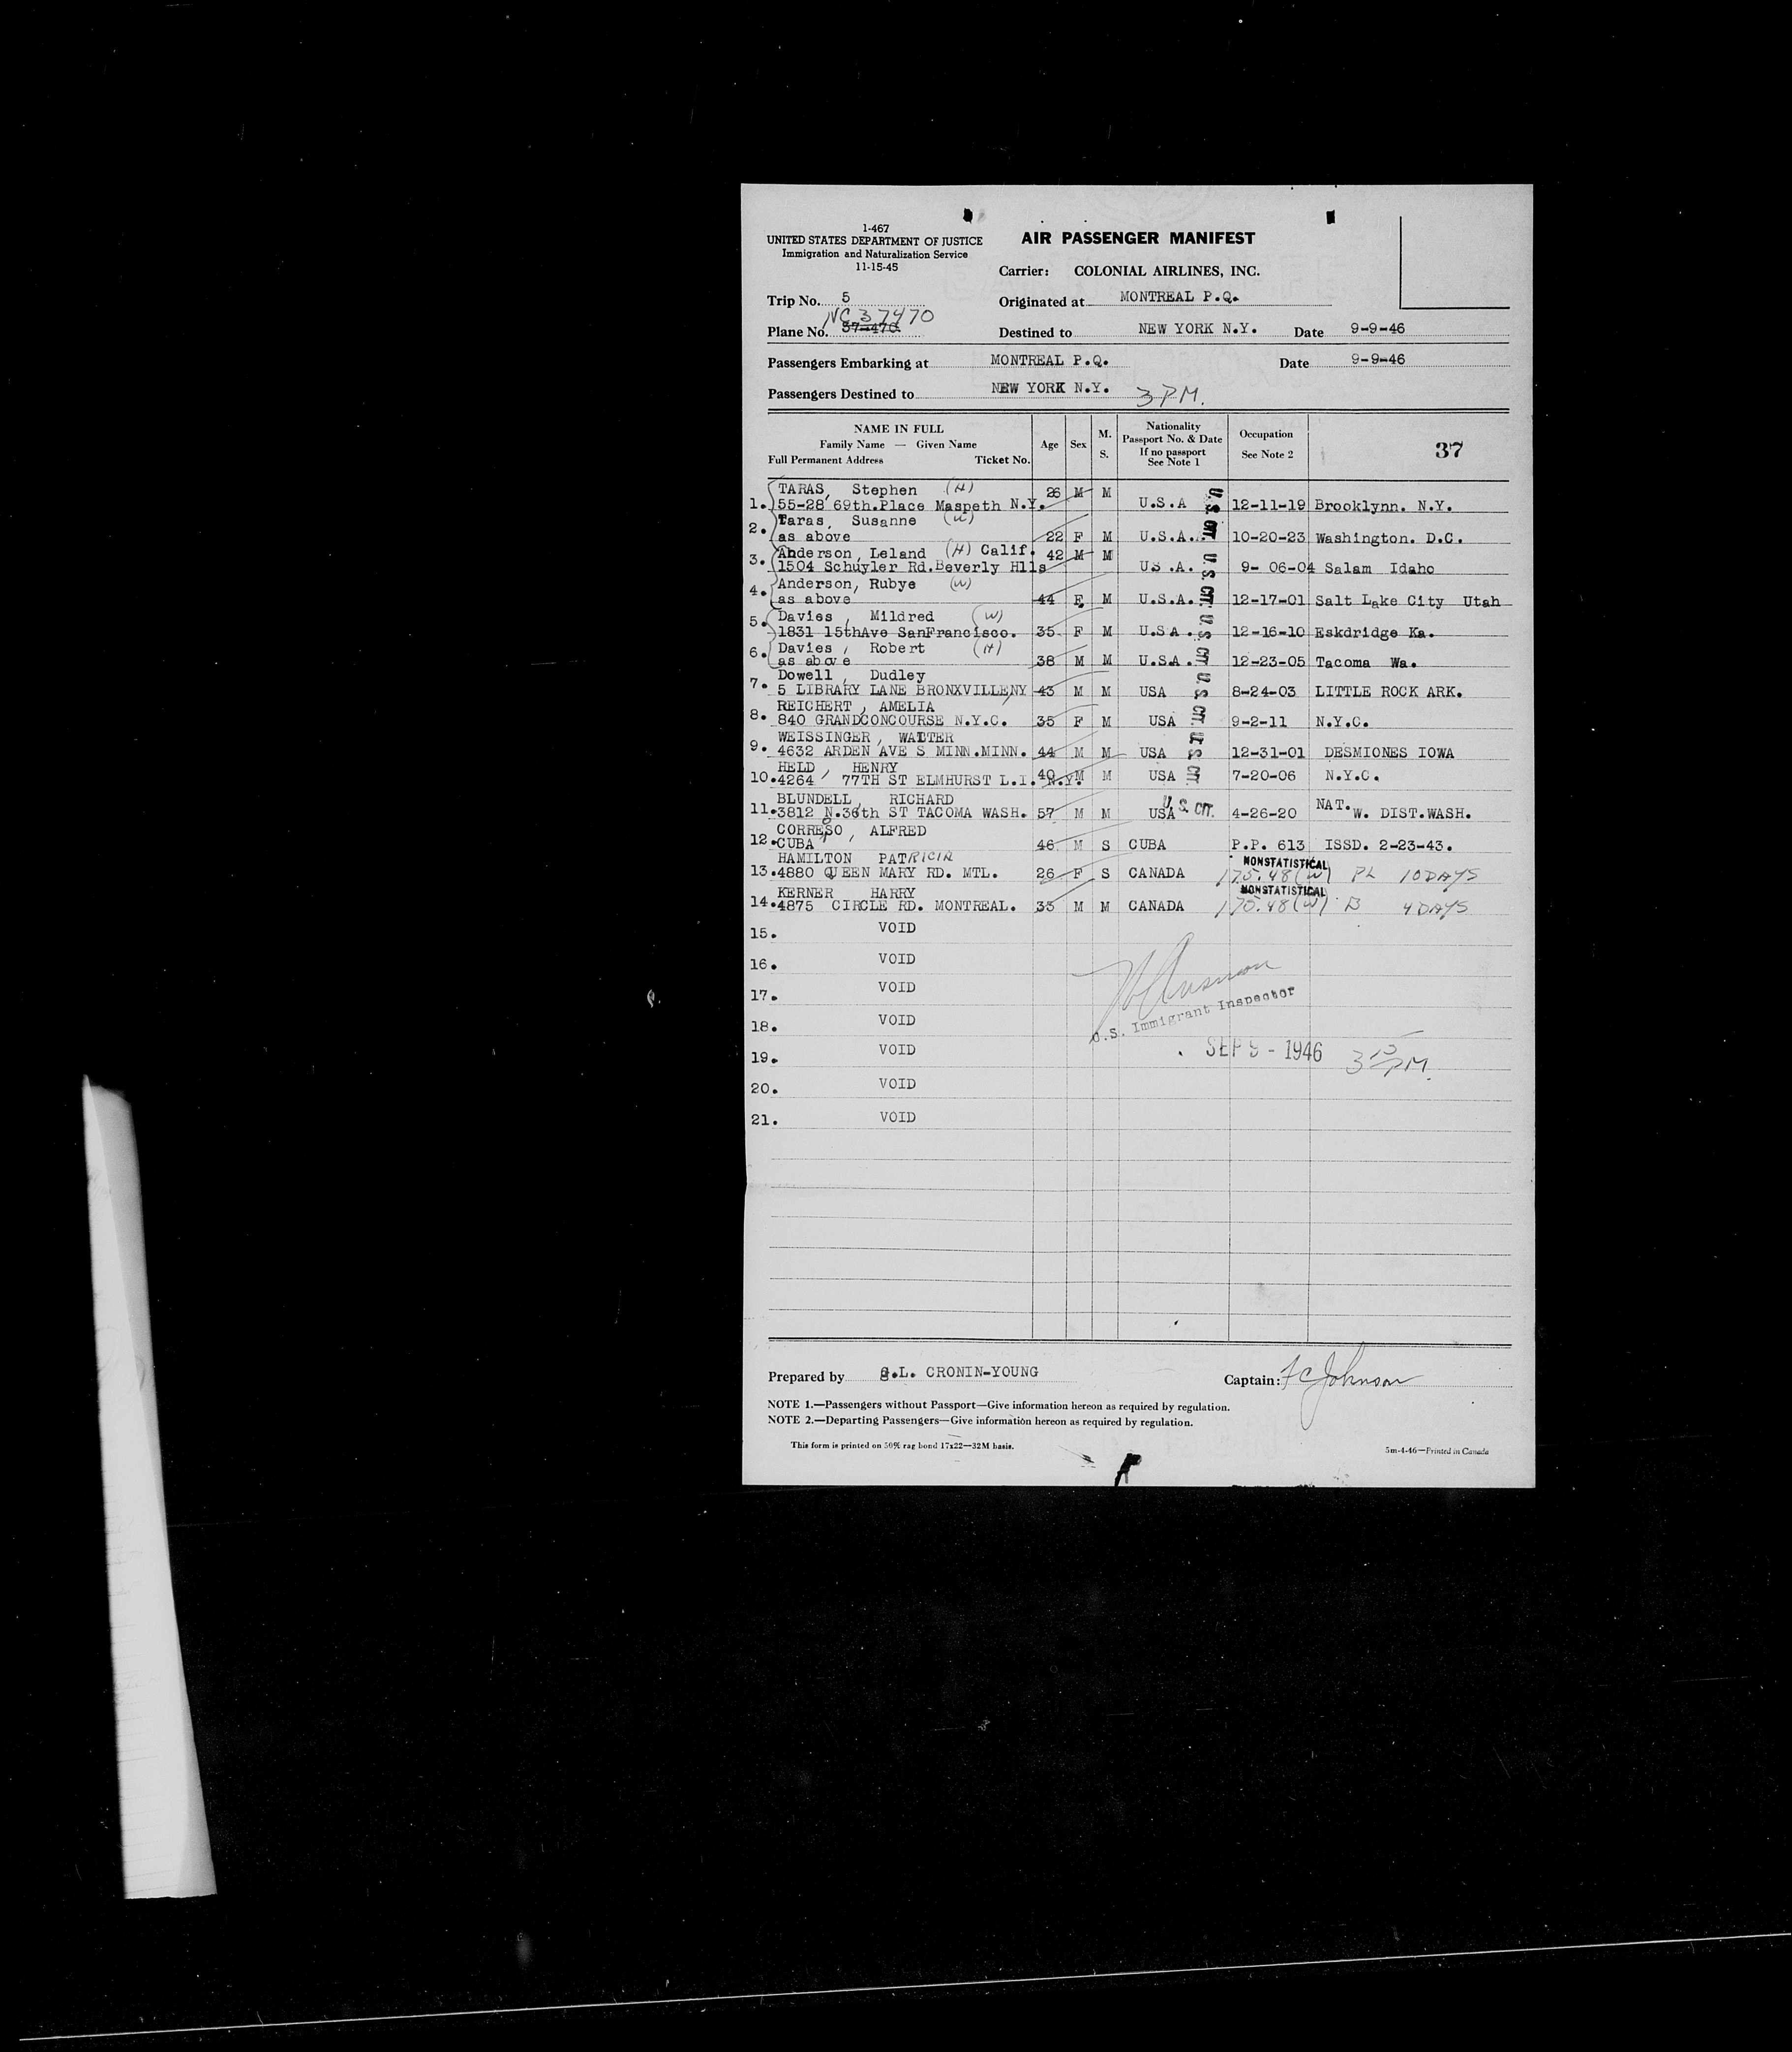 1-467
UNITED STATES DEPARTMENT OF JUSTICE
Immigration and Naturalization Service
11-15-45
AIR PASSENGER MANIFEST
Carrier: COLONIAL AIRLINES, INC.
Trip No. 5
Originated at MONTREAL P.Q.
NC 37470
Plane No. 37-470
Destined to NEW YORK N.Y. Date 9-9-46
Passengers Embarking at MONTREAL P.Q. Date 9-9-46
Passengers Destined to NEW YORK N.Y. 3 P.M.
NAME IN FULL
Family Name — Given Name
Full Permanent Address Ticket No.
Age
Sex
M.
S.
Nationality
Passport No. & Date
If no passport
See Note 1
Occupation
See Note 2
37
TARAS, Stephen (H) 26 M M
1. 55-28 69th.Place Maspeth N.Y. U.S.A U.S. CIT. 12-11-19 Brooklynn. N.Y.
2. Taras, Susanne (W)
as above 22 F M U.S.A. 10-20-23 Washington. D.C.
3. Anderson, Leland (H) Calif. 42 M M
1504 Schuyler Rd.Beverly Hlls US .A. U.S. CIT. 9- 06-04 Salam Idaho
4. Anderson, Rubye (W)
as above 44 F M U.S.A. 12-17-01 Salt Lake City Utah
5. Davies , Mildred (W)
1831 15thAve SanFrancisco. 35 F M U.S A . U.S. CIT. 12-16-10 Eskdridge Ka.
6. Davies , Robert (H)
as above 38 M M U.S.A . 12-23-05 Tacoma Wa.
7. Dowell , Dudley
5 LIBRARY LANE BRONXVILLENY 43 M M USA U.S. CIT. 8-24-03 LITTLE ROCK ARK.
8. REICHERT , AMELIA
840 GRANDCONCOURSE N.Y.C. 35 F M USA 9-2-11 N.Y.C.
9. WEISSINGER , WALTER
4632 ARDEN AVE S MINN.MINN. 44 M M USA U.S. CIT. 12-31-01 DESMIONES IOWA
HELD , HENRY
10. 4264 77TH ST ELMHURST L.I. N.Y. 40 M M USA 7-20-06 N.Y.C.
BLUNDELL , RICHARD
11. 3812 N.36th ST TACOMA WASH. 57 M M USA U.S. CIT. 4-26-20 NAT. W. DIST.WASH.
CORRESO , ALFRED
12. CUBA 46 M S CUBA P.P. 613 ISSD. 2-23-43.
HAMILTON PATRICIA NONSTATISTICAL
13. 4880 QUEEN MARY RD. MTL. 26 F S CANADA 175.48(W) PL 10 DAYS
KERNER HARRY NONSTATISTICAL
14. 4875 CIRCLE RD. MONTREAL. 33 M M CANADA 170.48(W) B 4 DAYS
15. VOID
16. VOID
17. VOID
18. VOID
U.S. Immigrant Inspector
19. VOID
SEP 9 - 1946 3 15 PM.
20. VOID
21. VOID
Prepared by G.L. CRONIN-YOUNG
Captain: F C Johnson
NOTE 1.—Passengers without Passport—Give information hereon as required by regulation.
NOTE 2.—Departing Passengers—Give information hereon as required by regulation.
This form is printed on 50% rag bond 17x22—32M basis.
5m-4-46—Printed in Canada